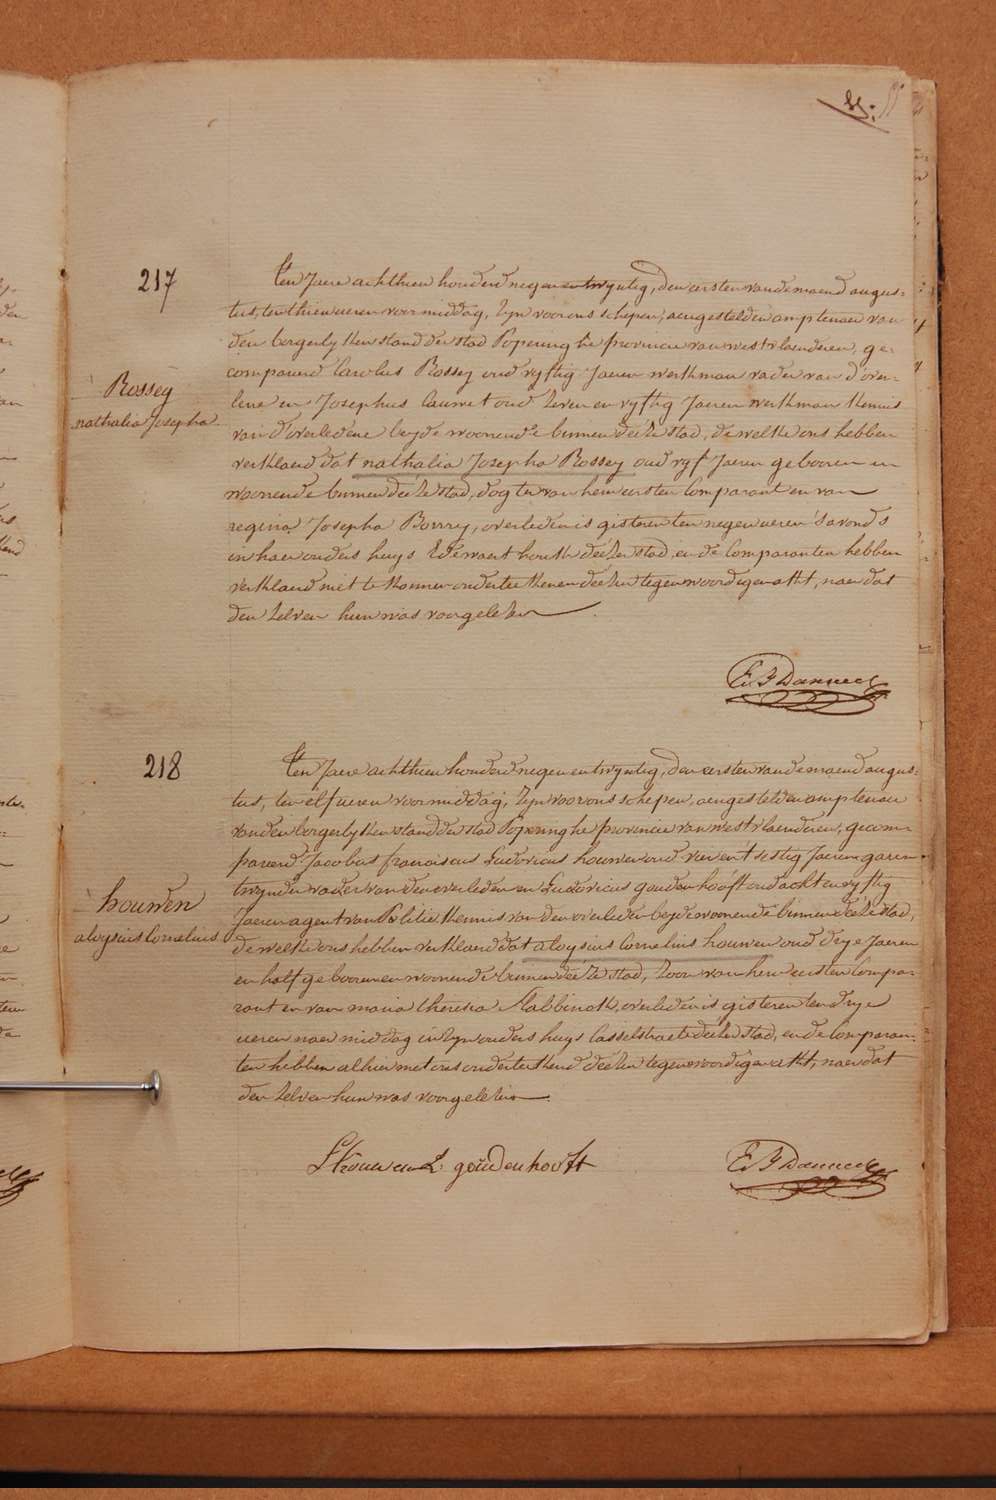 55.
217
Ten Jaere achthien honderd negen entwyntig, den eersten van de maend augus-
tus, ten thien ueren voormiddag, Zyn voor ons schepen, aengestelden amptenaer van
den borgerlyken stand der stad Poperinghe provincie van westvlaenderen, ge-
compareerd Carolus Rossey oud vyftig Jaeren werkman vader van d'over-
Rossey
nathalia Josepha
ledene en Josephus Cauwet oud Zeven en vyftig Jaeren werkman kennis
van d'overledene beyde woonende binnen deéze stad, de welke ons hebben
verklaerd dat nathalia Josepha Rossey oud vyf Jaeren gebooren en
woonende binnen deéze stad, dogter van hem eersten Comparant en van
regina Josepha Borrey, overleden is gisteren ten negen ueren s'avonds
in haer ouders huys Edewaert hoek deézer stad, en de Comparanten hebben
verklaerd niet te konnen onderteekenen deézen tegenwoordigen akt, naer dat
den zelven hun was voorgelezen
218
Ten Jaere achthien honderd negen entwyntig, den eersten van de maend augus-
tus, ten elf ueren voormiddag, Zyn voor ons schepen, aengestelden amptenaer
van den borgerlyken stand der stad Poperinghe provincie van westvlaenderen, gecom-
pareerd Jacobus franciscus Ludovicus houwen oud vier en t'sestig Jaeren garen
twynder vader van den overleden en Ludovicus goudenhooft oud acht en vyftig
houwen
aloysius Cornelius
Jaeren agent van Politie kennis van den overleden beyde woonende binnen deéze stad,
de welke ons hebben verklaerd dat aloysius Cornelius houwen oud drye Jaeren
en half gebooren en woonende binnen deéze stad, Zoon van hem eersten Compa-
rant en van maria theresia Slabbinck, overleden is gisteren ten drye
ueren naer middag in Zyn ouders huys Casselstraete deézer stad, en de Comparan-
ten hebben alhier met ons onderteekend deézen tegenwoordigen akt, naer dat
den zelven hun was voorgelezen
L goudenhooft